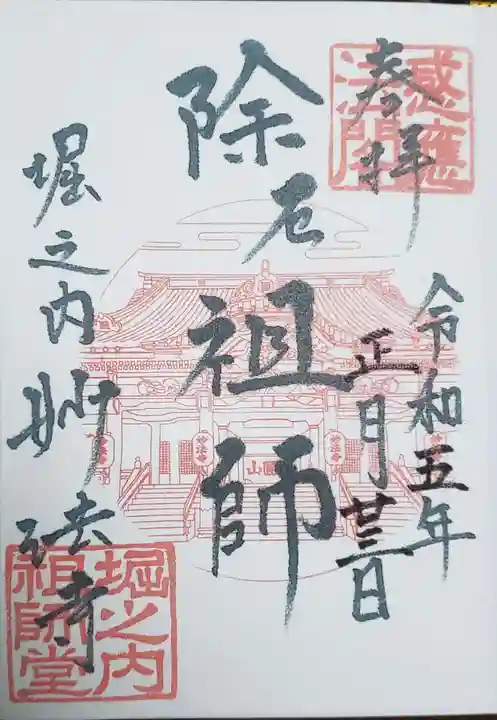 感應
奉拝
令和五年
正月廿三日
除厄祖師
堀之内妙法寺
堀之内
祖師堂
妙法寺
妙法寺